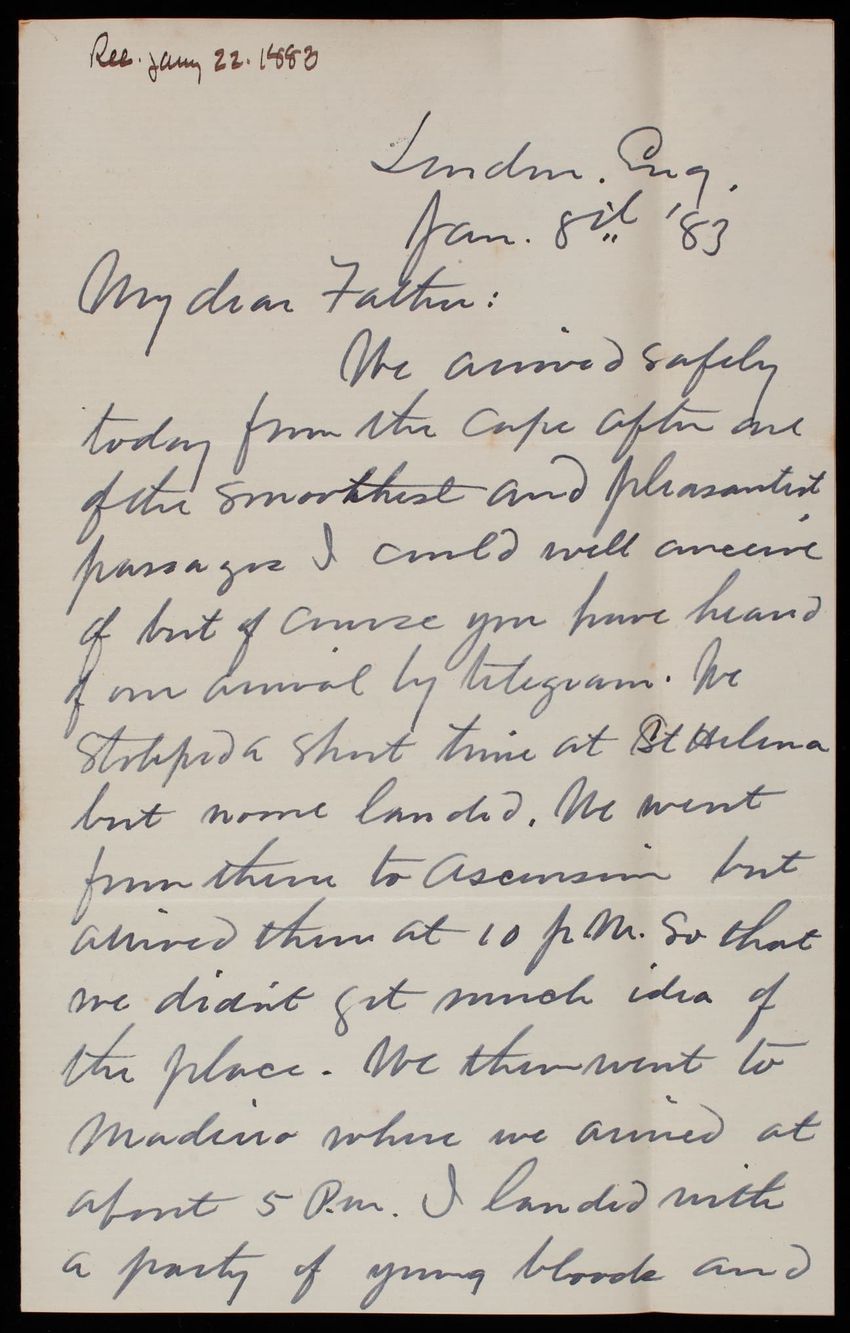 Rec. Jany 22. 1883
London. Eng.
Jan. 8th '83
My dear Father:
We arrived safely
today from the Cape after one
of the smoothest and pleasantest
passages I could well conceive
of but of course you have heard
of our arrival by telegram. We
stopped a short time at St Helena
but none landed. We went
from there to Ascension but
arrived there at 10 p M. so that
we didn't get much idea of
the place. We then went to
Madeira where we arrived at
about 5 P.m. I landed with
a party of young bloods and